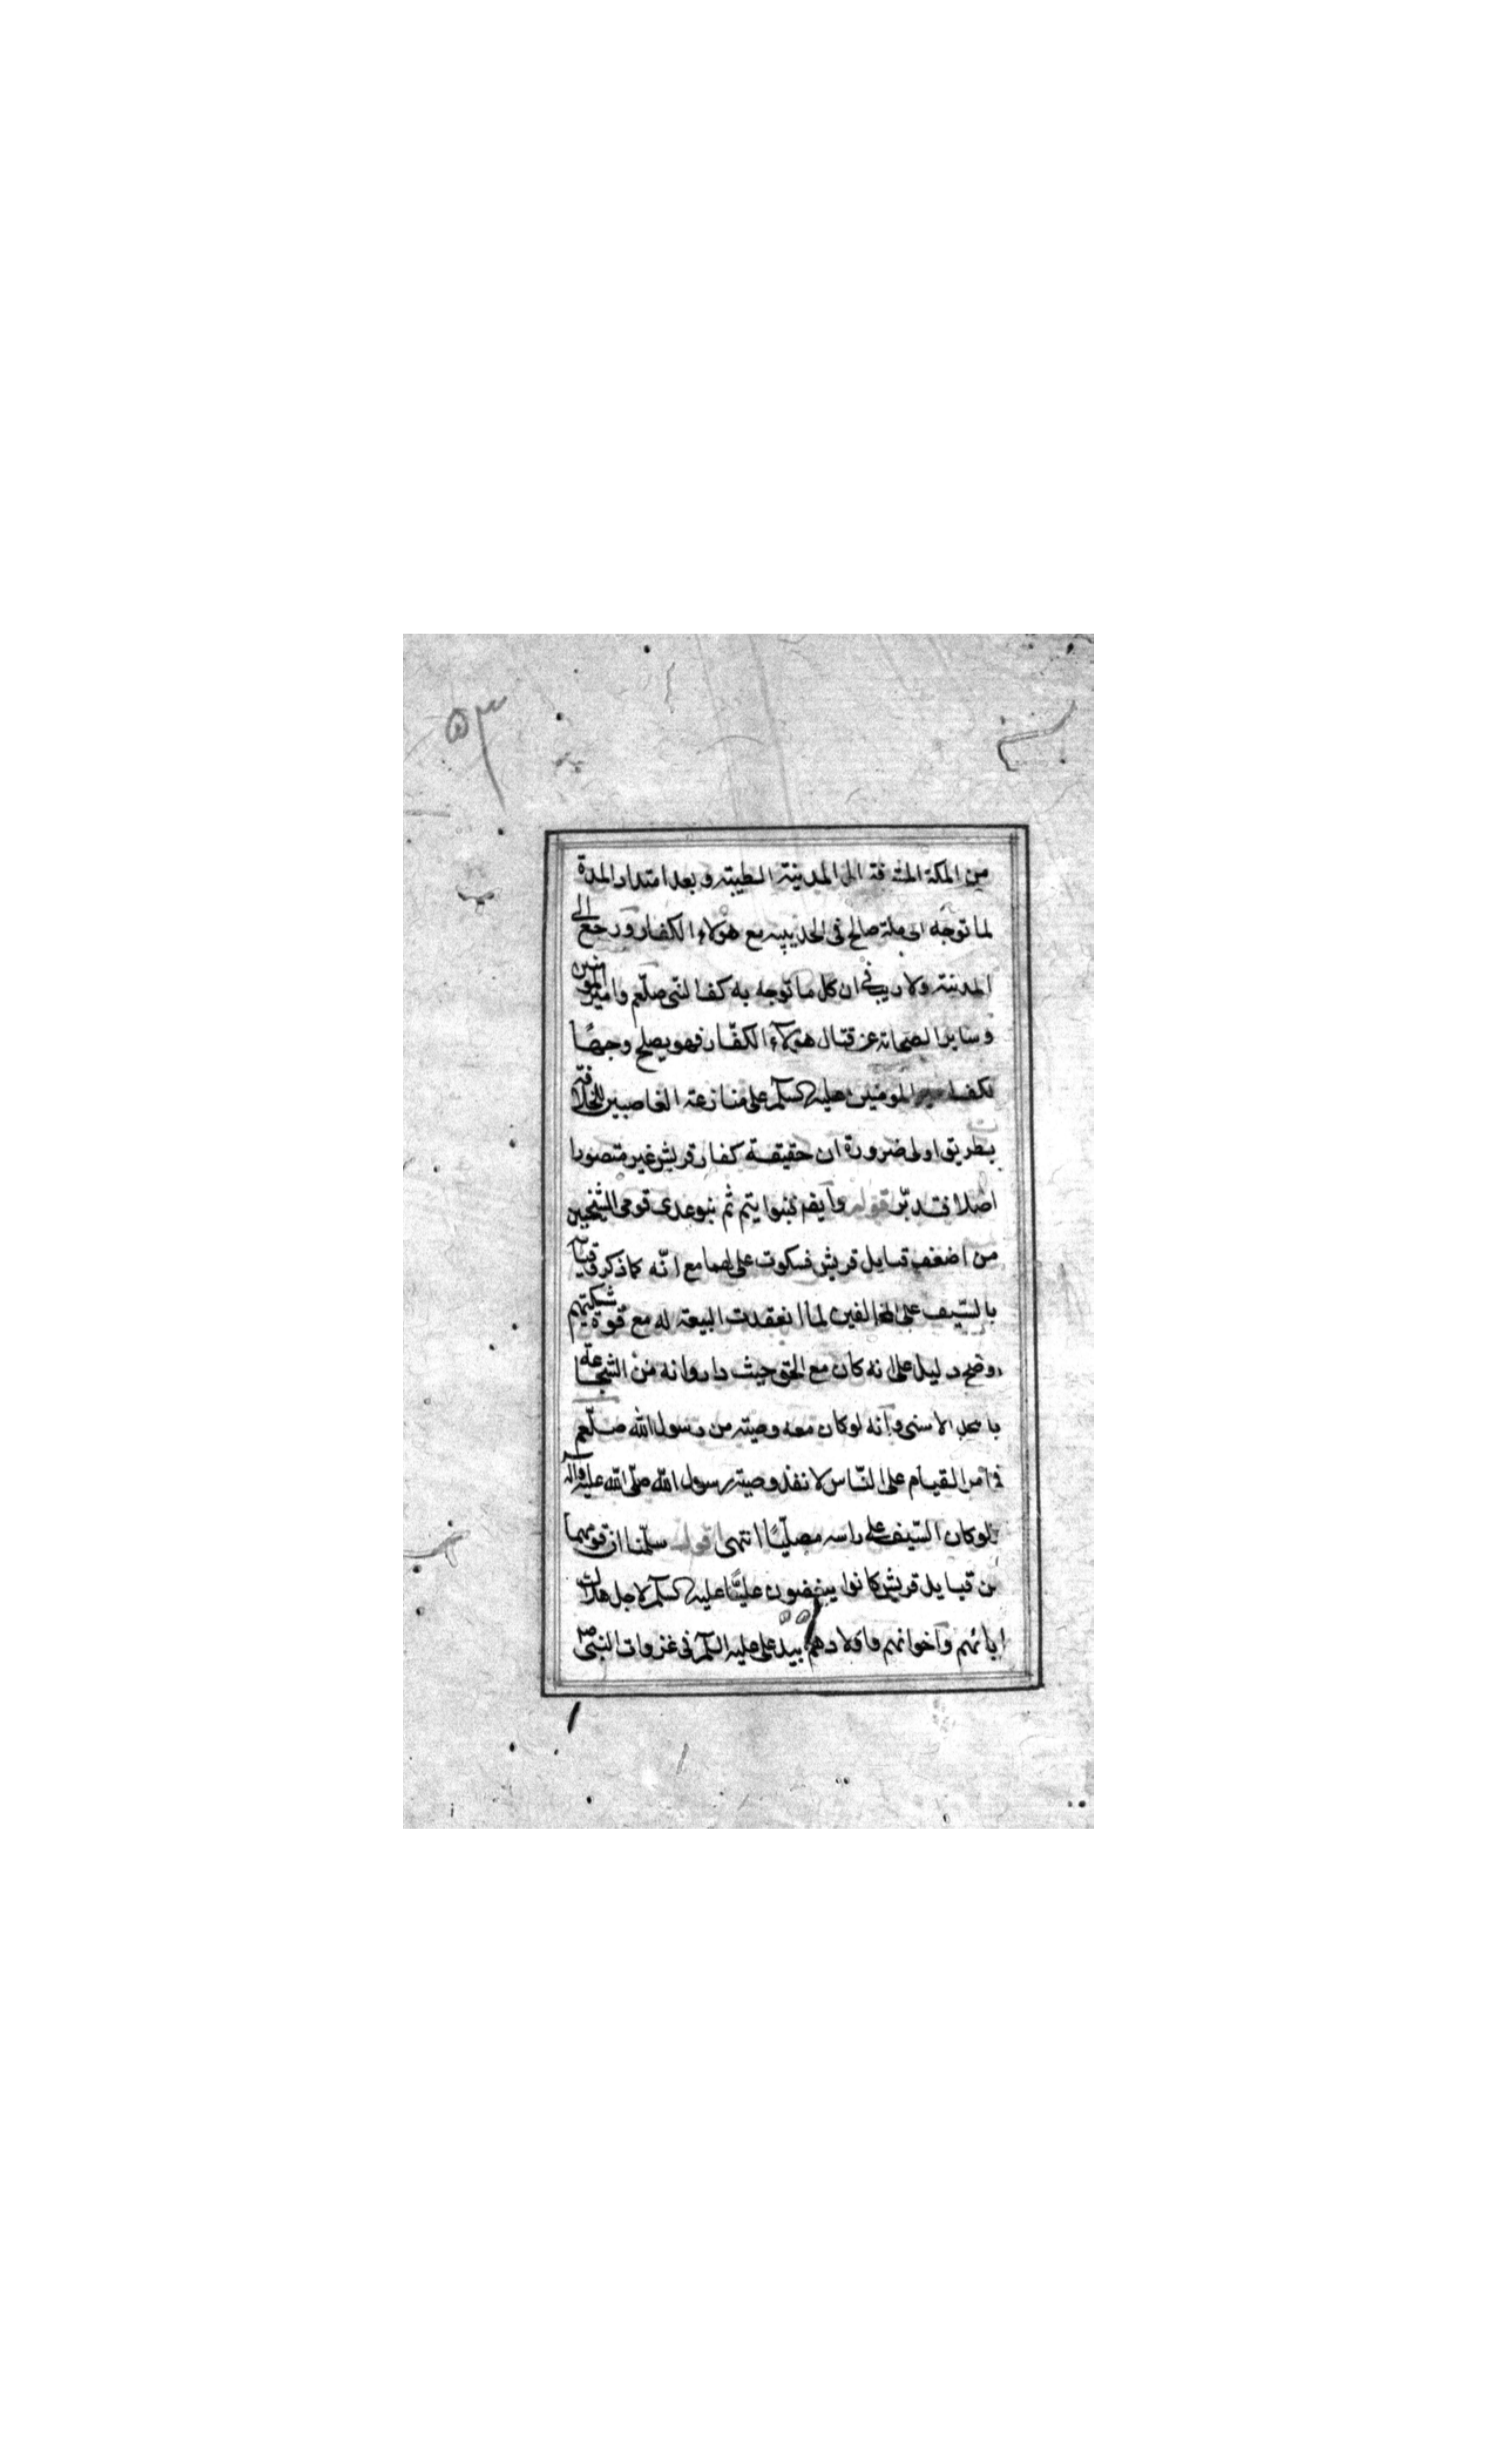 ٥٣
من المكة المشرفة الى المدينة الطيبة وبعد امتداد المدة
لما توجه الى مكة صالح فى الحديبيه مع هؤلاء الكفار ورجع الى
المدينة ولا ريب فى ان كل ما توجه به كف النبى صلعم وامير المؤمنين
وساير الصحابة عن قتال هؤلاء الكفار فهو يصلح وجها
لكف امير المومنين عليه السلم على منازعة الغاصبين للخلافة
بطريق اولى ضرورة ان حقيقة كفار قريش غير متصور
اصلا فتدبر قوله وايضا بنوا تيم ثم بنو عدى قومى الشيخين
من اضعف قبايل قريش فسكوت على لهما مع انه كما ذكر قيامه
بالسيف على المخالفين لما انعقدت البيعة له مع قوة شكيتهم
اوضح دليل على انه كان مع الحق حيث دار وانه من الشجاعة
بالمحل الاسنى وانه لو كان معه وصية من رسول الله صلعم
فى امر القيام على الناس لانفذ وصية رسول الله صلى الله عليه وآله
ولو كان السيف على راسه مصلتا انتهى قوله سلمنا ان قومهما
من قبايل قريش كانوا يبغضون عليا عليه السلم لاجل هلاك
ابائهم واخوانهم واولادهم بيد على عليه السلم فى غزوات النبى ص